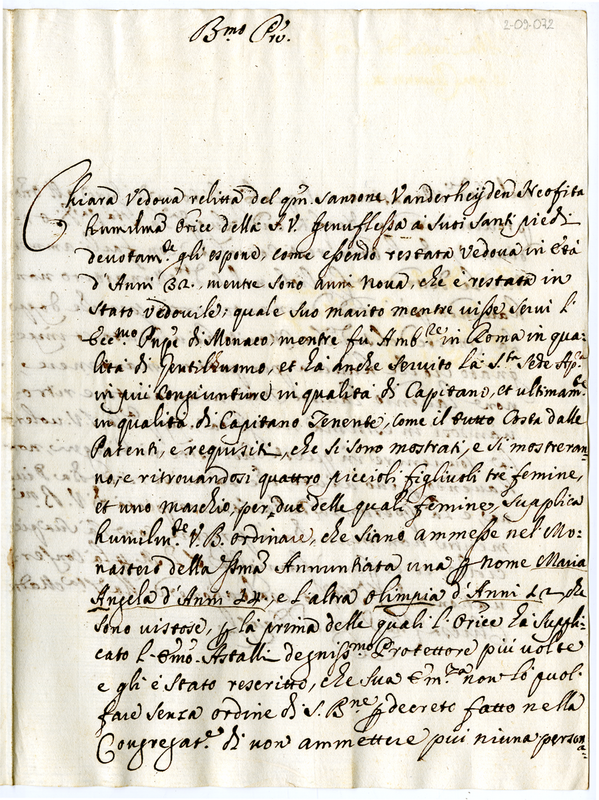 2-09-072
B.mo Pre.
Chiara Vedova relitta del qm. Sanzone Vanderheyden Neofita
humilma Orice della S.V. Genuflessa a i suoi santi piedi
devotam.te gli espone, come essendo restata Vedova in età
d'Anni 32. mentre sono anni nova, che è restata in
stato vedovile; quale suo marito mentre visse servì l'
Ecc.mo Pnpe di Monaco mentre fu Amb.re in Roma in qua-
lità di Gentilhuomo, et hà anche servito la S.ta Sede Ap.ca
in più congiunture in qualità di Capitano, et ultimam.te
in qualità di Capitano Tenente, come il tutto costa dalle
Patenti, e requisiti, che si sono mostrati, e si mostreran-
no, e ritrovandosi quattro piccioli figlivoli tre femine,
et uno maschio, per due delle quali femine, supplica
humilm.te V.B. ordinare, che siano ammesse nel Mo-
nastero della Ssma Annuntiata una p nome Maria
Angela d'Anni 14, e l'altra Olimpia d'Anni 12 che
sono vistose, p la prima delle quali l'Orice hà suppli-
cato l'Emo. Astalli degniss.mo Protettore più volte
e gli è stato rescritto, che sua Em.za non lo può
fare senza ordine di S. B.ne p decreto fatto nella
Congregat.e di non ammettere più niuna persona